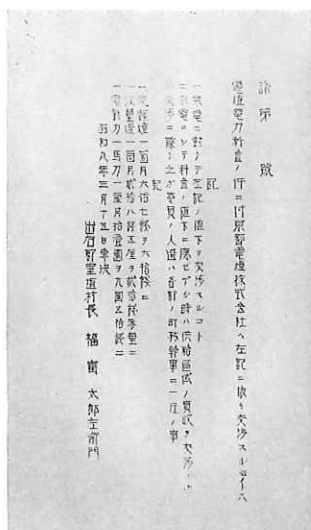 諭第　號
電燈電力料金ノ件ニ付京都電燈株式会社ヘ左記ニ依リ交渉スルモノトス
記
一京電ニ對シテ左記ノ値下ヲ交渉スルコト
一京電ニシテ料金ノ値下ニ應ゼザル時ハ供給區域ノ買収ヲ交渉ノ
交渉ニ際シ之ガ委員ノ人選ハ各町ノ町村幹事ニ一任ノ事
記
一定額燈一箇月六拾七銭ヲ六拾銭ニ
一箇月貳拾八銭五厘ヲ貳拾銭
一電動力一馬力一箇月拾壹圓ヲ九圓五拾銭ニ
昭和八年三月十五日早決
出石郡室埴村長　福富太郎左衛門